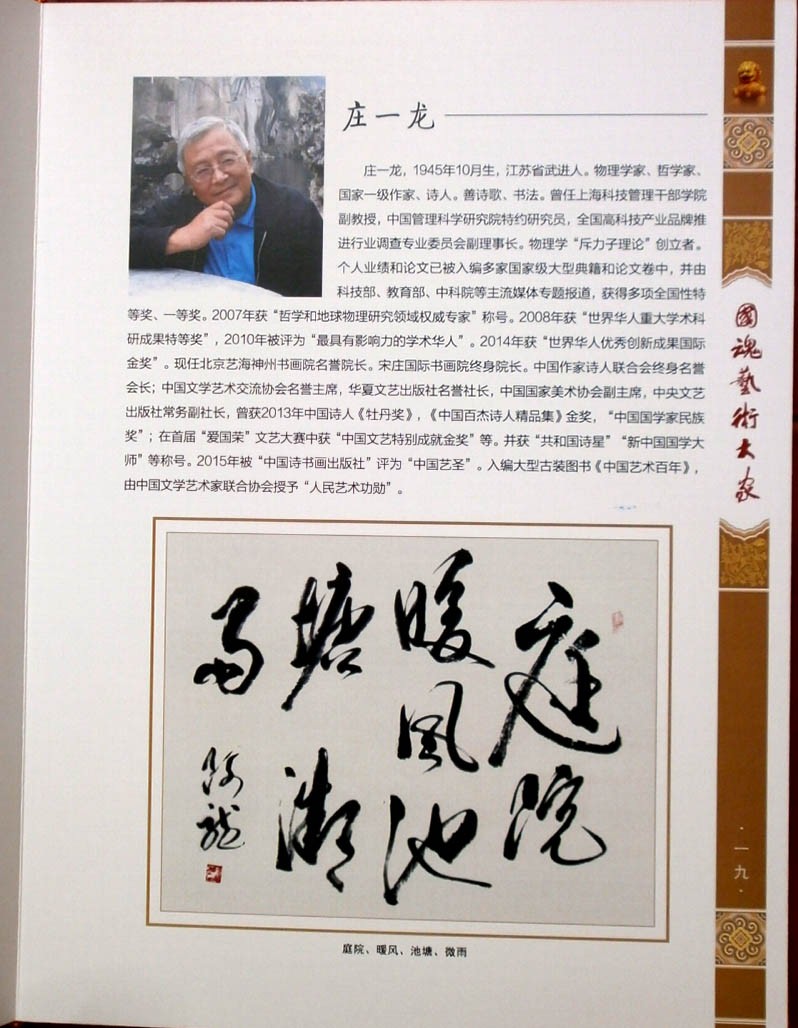 庄一龙
庄一龙，1945年10月生，江苏省武进人。物理学家、哲学家、
国家一级作家、诗人。善诗歌、书法。曾任上海科技管理干部学院
副教授，中国管理科学研究院特约研究员，全国高科技产业品牌推
进行业调查专业委员会副理事长。物理学“斥力子理论”创立者。
个人业绩和论文已被入编多家国家级大型典籍和论文卷中，并由
科技部、教育部、中科院等主流媒体专题报道，获得多项全国性特
等奖、一等奖。2007年获“哲学和地球物理研究领域权威专家”称号。2008年获“世界华人重大学术科
研成果特等奖”，2010年被评为“最具有影响力的学术华人”。2014年获“世界华人优秀创新成果国际
金奖”。现任北京艺海神州书画院名誉院长。宋庄国际书画院终身院长。中国作家诗人联合会终身名誉
会长；中国文学艺术交流协会名誉主席，华夏文艺出版社名誉社长，中国国家美术协会副主席，中央文艺
出版社常务副社长，曾获2013年中国诗人《牡丹奖》，《中国百杰诗人精品集》金奖，“中国国学家民族
奖”；在首届“爱国荣”文艺大赛中获“中国文艺特别成就金奖”等。并获“共和国诗星”“新中国国学大
师”等称号。2015年被“中国诗书画出版社”评为“中国艺圣”。入编大型古装图书《中国艺术百年》，
由中国文学艺术家联合协会授予“人民艺术功勋”。
國魂藝術大家
庭院
暖风池
塘微
雨
庭院、暖风、池塘、微雨
·一九·